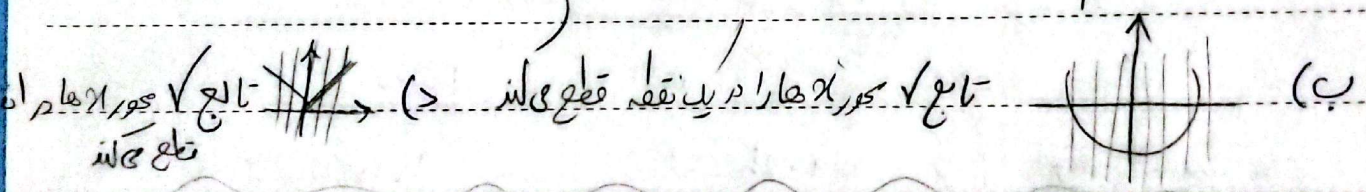 ب) تابع √ محور xها را در یک نقطه قطع می‌کند د) تابع √ محور xها در
قطع می‌کند